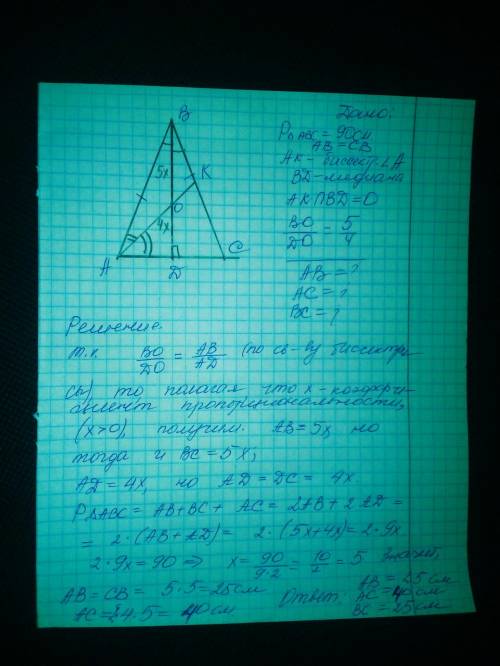 Дано:
P△ABC = 90см
AB = CB
AK - биссектр. ∠A
BD - медиана
AK∩BD=O
BO/DO = 5/4
AB = ?
AC = ?
BC = ?
B
5x
K
O
4x
A
D
C
Решение.
т.к. BO/DO = AB/AD (по св-ву биссектри
сы), то полагая что x - коэффи-
циент пропорциональности,
(x>0), получим. AB=5x, но
тогда и BC=5x;
AD = 4x, но AD=DC= 4x
P△ABC = AB+BC+ AC = 2AB+2AD =
= 2·(AB+AD)= 2·(5x+4x)=2·9x
2·9x=90 => x= 90/9·2 = 10/2 = 5 Значит,
AB=CB= 5·5=25см
AC=2·4·5= 40см
Ответ: AB=25см
AC=40см
BC=25см